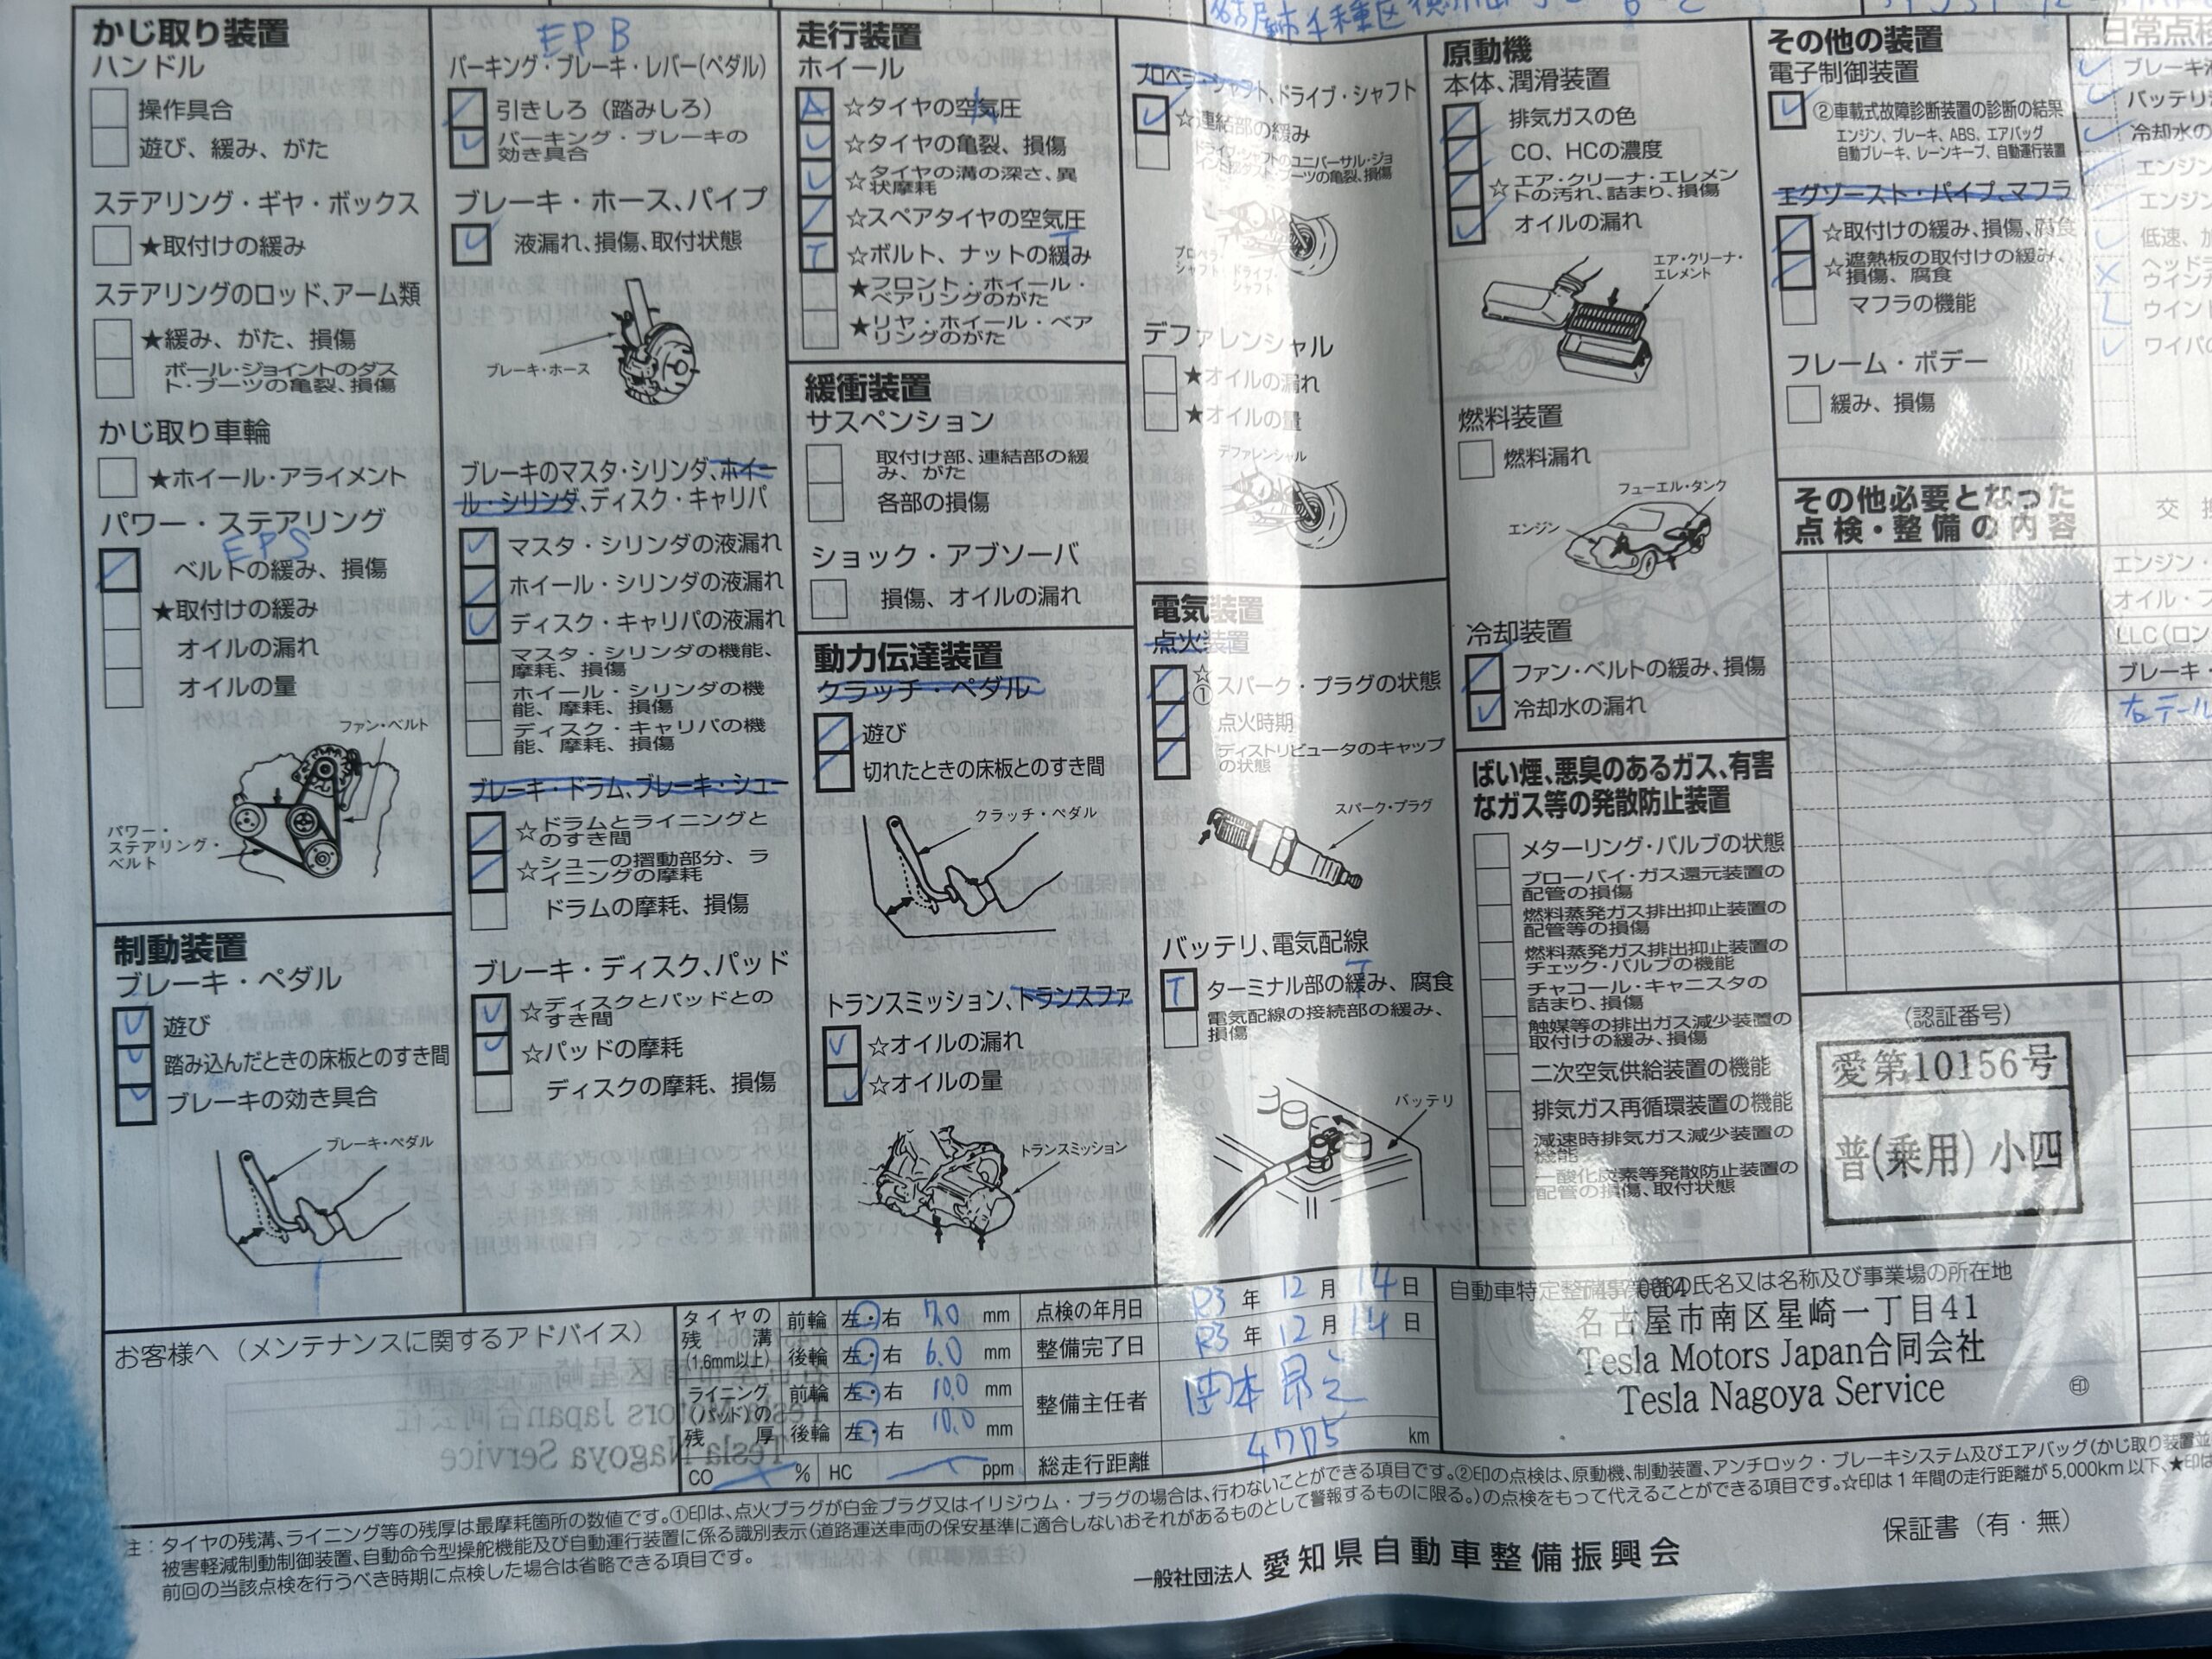 かじ取り装置
ハンドル
操作具合
遊び、緩み、がた
ステアリング・ギヤ・ボックス
★取付けの緩み
ステアリングのロッド、アーム類
★緩み、がた、損傷
ボール・ジョイントのダス
ト・ブーツの亀裂、損傷
かじ取り車輪
★ホイール・アライメント
パワー・ステアリング
EPS
ベルトの緩み、損傷
★取付けの緩み
オイルの漏れ
オイルの量
ファン・ベルト
パワー・
ステアリング・
ベルト
制動装置
ブレーキ・ペダル
遊び
踏み込んだときの床板とのすき間
ブレーキの効き具合
ブレーキ・ペダル
EPB
パーキング・ブレーキ・レバー(ペダル)
引きしろ（踏みしろ）
パーキング・ブレーキの
効き具合
ブレーキ・ホース、パイプ
液漏れ、損傷、取付状態
ブレーキ・ホース
ブレーキのマスタ・シリンダ、ホイー
ル・シリンダ、ディスク・キャリパ
マスタ・シリンダの液漏れ
ホイール・シリンダの液漏れ
ディスク・キャリパの液漏れ
マスタ・シリンダの機能、
摩耗、損傷
ホイール・シリンダの機
能、摩耗、損傷
ディスク・キャリパの機
能、摩耗、損傷
ブレーキ・ドラム、ブレーキ・シュー
☆ドラムとライニングと
のすき間
☆シューの摺動部分、ラ
イニングの摩耗
ドラムの摩耗、損傷
ブレーキ・ディスク、パッド
☆ディスクとパッドとの
すき間
☆パッドの摩耗
ディスクの摩耗、損傷
走行装置
ホイール
A ☆タイヤの空気圧 A
☆タイヤの亀裂、損傷
☆タイヤの溝の深さ、異
状摩耗
☆スペアタイヤの空気圧
T ☆ボルト、ナットの緩み T
★フロント・ホイール・
ベアリングのがた
★リヤ・ホイール・ベア
リングのがた
緩衝装置
サスペンション
取付け部、連結部の緩
み、がた
各部の損傷
ショック・アブソーバ
損傷、オイルの漏れ
動力伝達装置
クラッチ・ペダル
遊び
切れたときの床板とのすき間
クラッチ・ペダル
トランスミッション、トランスファ
☆オイルの漏れ
☆オイルの量
トランスミッション
名古屋市千種区
プロペラ・シャフト、ドライブ・シャフト
☆連結部の緩み
ドライブ・シャフトのユニバーサル・ジョ
イント部ダスト・ブーツの亀裂、損傷
プロペラ・
シャフト
ドライブ・
シャフト
デファレンシャル
★オイルの漏れ
★オイルの量
デファレンシャル
電気装置
点火装置
☆
① スパーク・プラグの状態
点火時期
ディストリビュータのキャップ
の状態
スパーク・プラグ
バッテリ、電気配線
T ターミナル部の緩み、腐食 T
電気配線の接続部の緩み、
損傷
バッテリ
原動機
本体、潤滑装置
排気ガスの色
CO、HCの濃度
☆エア・クリーナ・エレメン
トの汚れ、詰まり、損傷
オイルの漏れ
エア・クリーナ・
エレメント
燃料装置
燃料漏れ
フューエル・タンク
エンジン
冷却装置
ファン・ベルトの緩み、損傷
冷却水の漏れ
ばい煙、悪臭のあるガス、有害
なガス等の発散防止装置
メターリング・バルブの状態
ブローバイ・ガス還元装置の
配管の損傷
燃料蒸発ガス排出抑止装置の
配管等の損傷
燃料蒸発ガス排出抑止装置の
チェック・バルブの機能
チャコール・キャニスタの
詰まり、損傷
触媒等の排出ガス減少装置の
取付けの緩み、損傷
二次空気供給装置の機能
排気ガス再循環装置の機能
減速時排気ガス減少装置の
機能
一酸化炭素等発散防止装置の
配管の損傷、取付状態
その他の装置
電子制御装置
②車載式故障診断装置の診断の結果
エンジン、ブレーキ、ABS、エアバッグ
自動ブレーキ、レーンキープ、自動運行装置
エグゾースト・パイプ、マフラ
☆取付けの緩み、損傷、腐食
☆遮熱板の取付けの緩み、
損傷、腐食
マフラの機能
フレーム・ボデー
緩み、損傷
その他必要となった
点検・整備の内容
（認証番号）
愛第10156号
普(乗用) 小四
日常点検
ブレーキ
バッテリ
冷却水の
エンジン
エンジン
低速、加
ヘッド
ウイン
ウイン
ワイパの
交換
エンジン・
オイル・フ
LLC(ロン
ブレーキ・
右テール
お客様へ（メンテナンスに関するアドバイス）
タイヤの
残溝
(1.6mm以上)
前輪 左・右 7.0 mm
後輪 左・右 6.0 mm
ライニング
(パッド)の
残厚
前輪 左・右 10.0 mm
後輪 左・右 10.0 mm
CO % HC ppm
点検の年月日 R3年12月14日
整備完了日 R3年12月14日
整備主任者 岡本 昂之
総走行距離 4705 km
自動車特定整備事業者の氏名又は名称及び事業場の所在地
名古屋市南区星崎一丁目41
Tesla Motors Japan合同会社
Tesla Nagoya Service
㊞
注：タイヤの残溝、ライニング等の残厚は最摩耗箇所の数値です。①印は、点火プラグが白金プラグ又はイリジウム・プラグの場合は、行わないことができる項目です。②印の点検は、原動機、制動装置、アンチロック・ブレーキシステム及びエアバッグ(かじ取り装置並
被害軽減制動制御装置、自動命令型操舵機能及び自動運行装置に係る識別表示(道路運送車両の保安基準に適合しないおそれがあるものとして警報するものに限る。)の点検をもって代えることができる項目です。☆印は1年間の走行距離が5,000km以下、★印は
前回の当該点検を行うべき時期に点検した場合は省略できる項目です。
一般社団法人 愛知県自動車整備振興会
保証書（有・無）